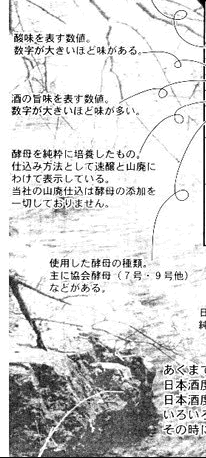 酸味を表す数値。
数字が大きいほど味がある。
酒の旨味を表す数値。
数字が大きいほど味が多い。
酵母を純粋に培養したもの。
仕込み方法として速醸と山廃に
わけて表示している。
当社の山廃仕込は酵母の添加を
一切しておりません。
使用した酵母の種類。
主に協会酵母（7号・9号他）
などがある。
日
純
あくまで
日本酒度
日本酒度
いろいろ
その時に